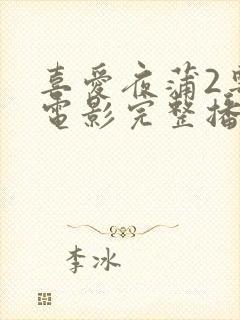 喜愛夜蒲2
電影完整播
李冰